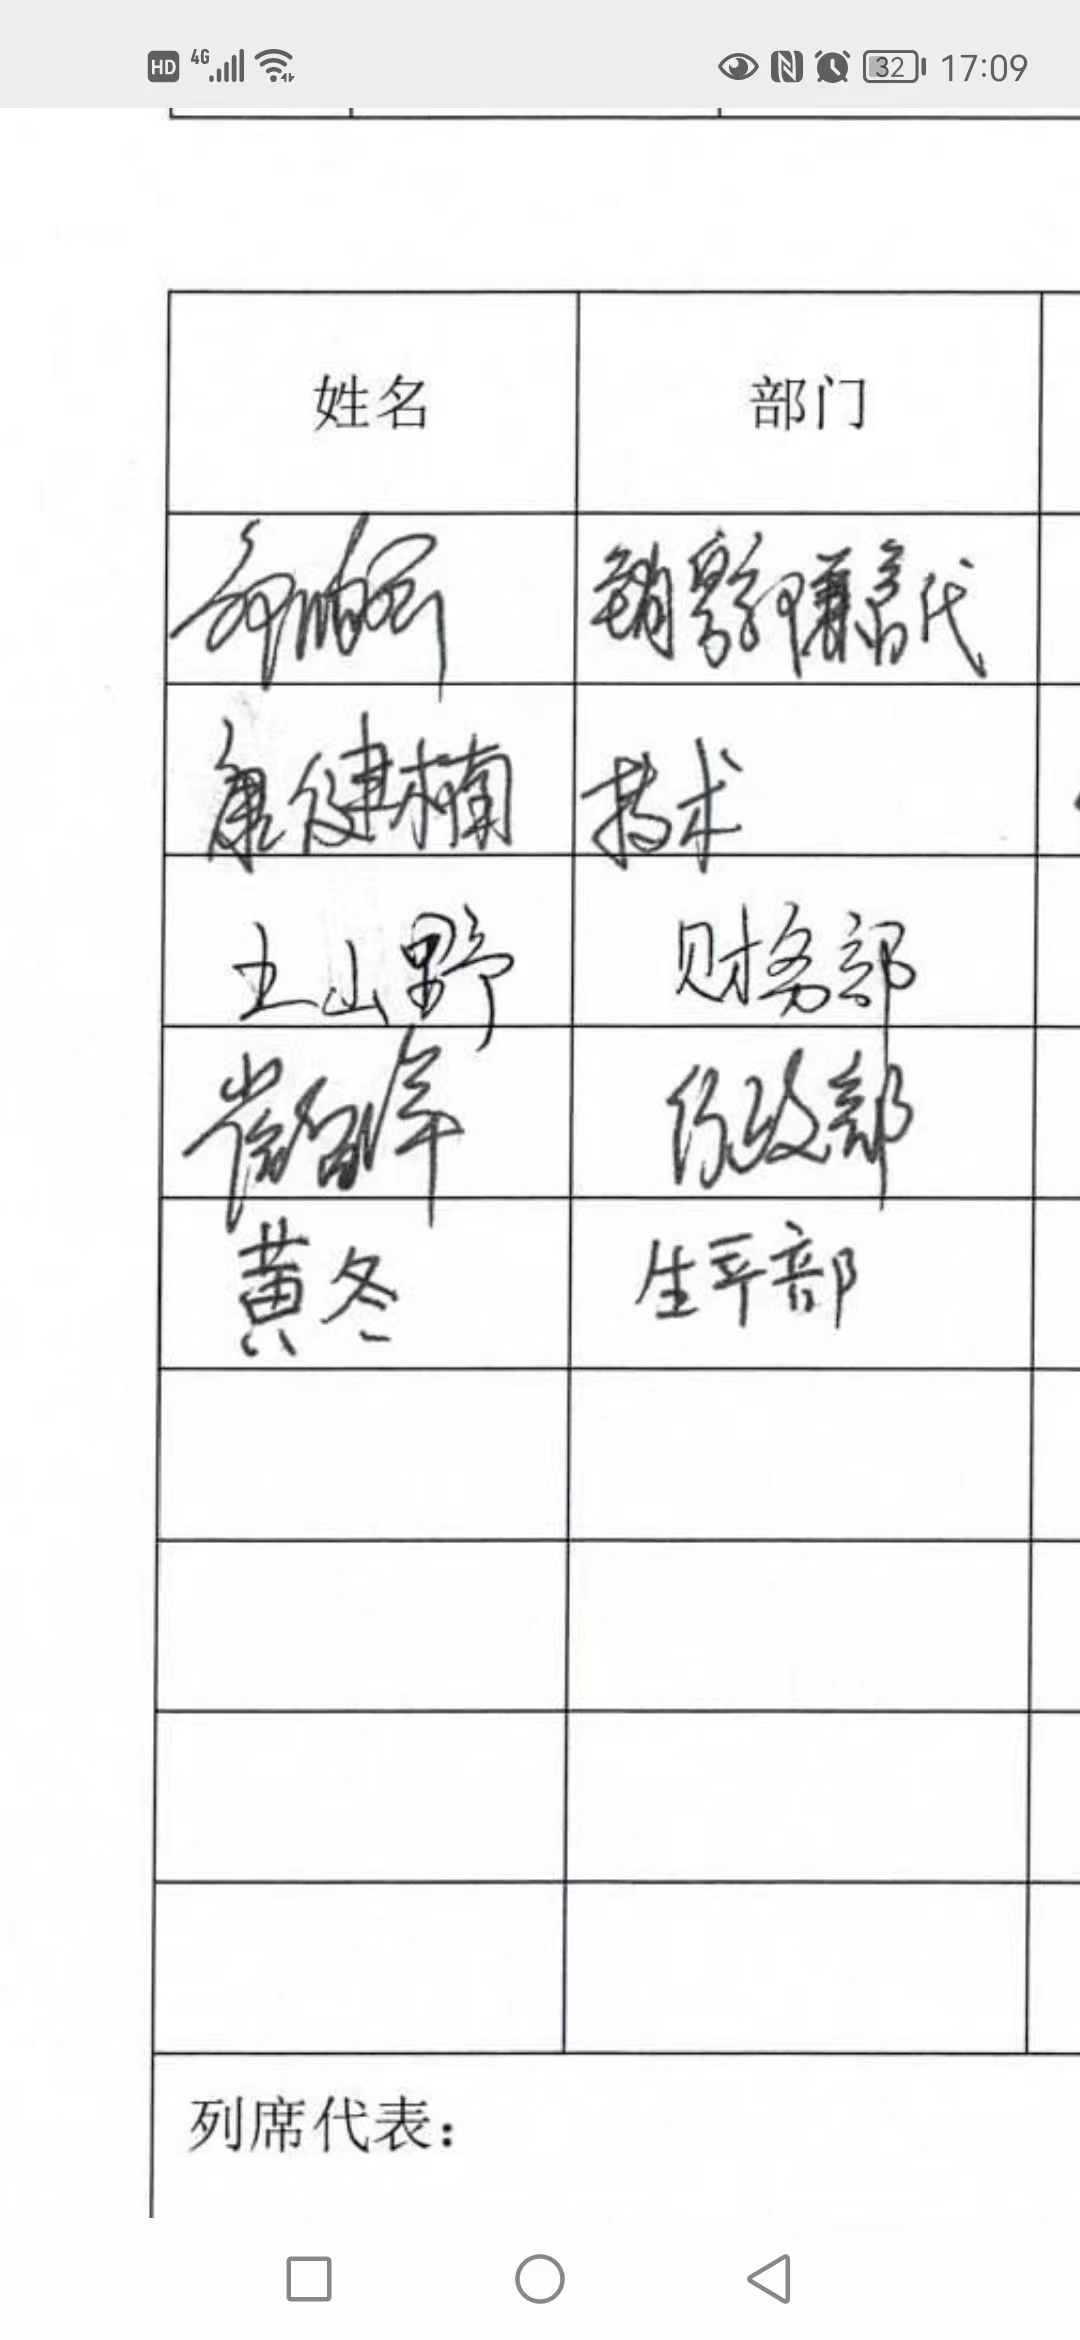 HD 4G 32 17:09
姓名 部门
康健楠 技术
王山野 财务部
行政部
黄冬 生产部
列席代表：